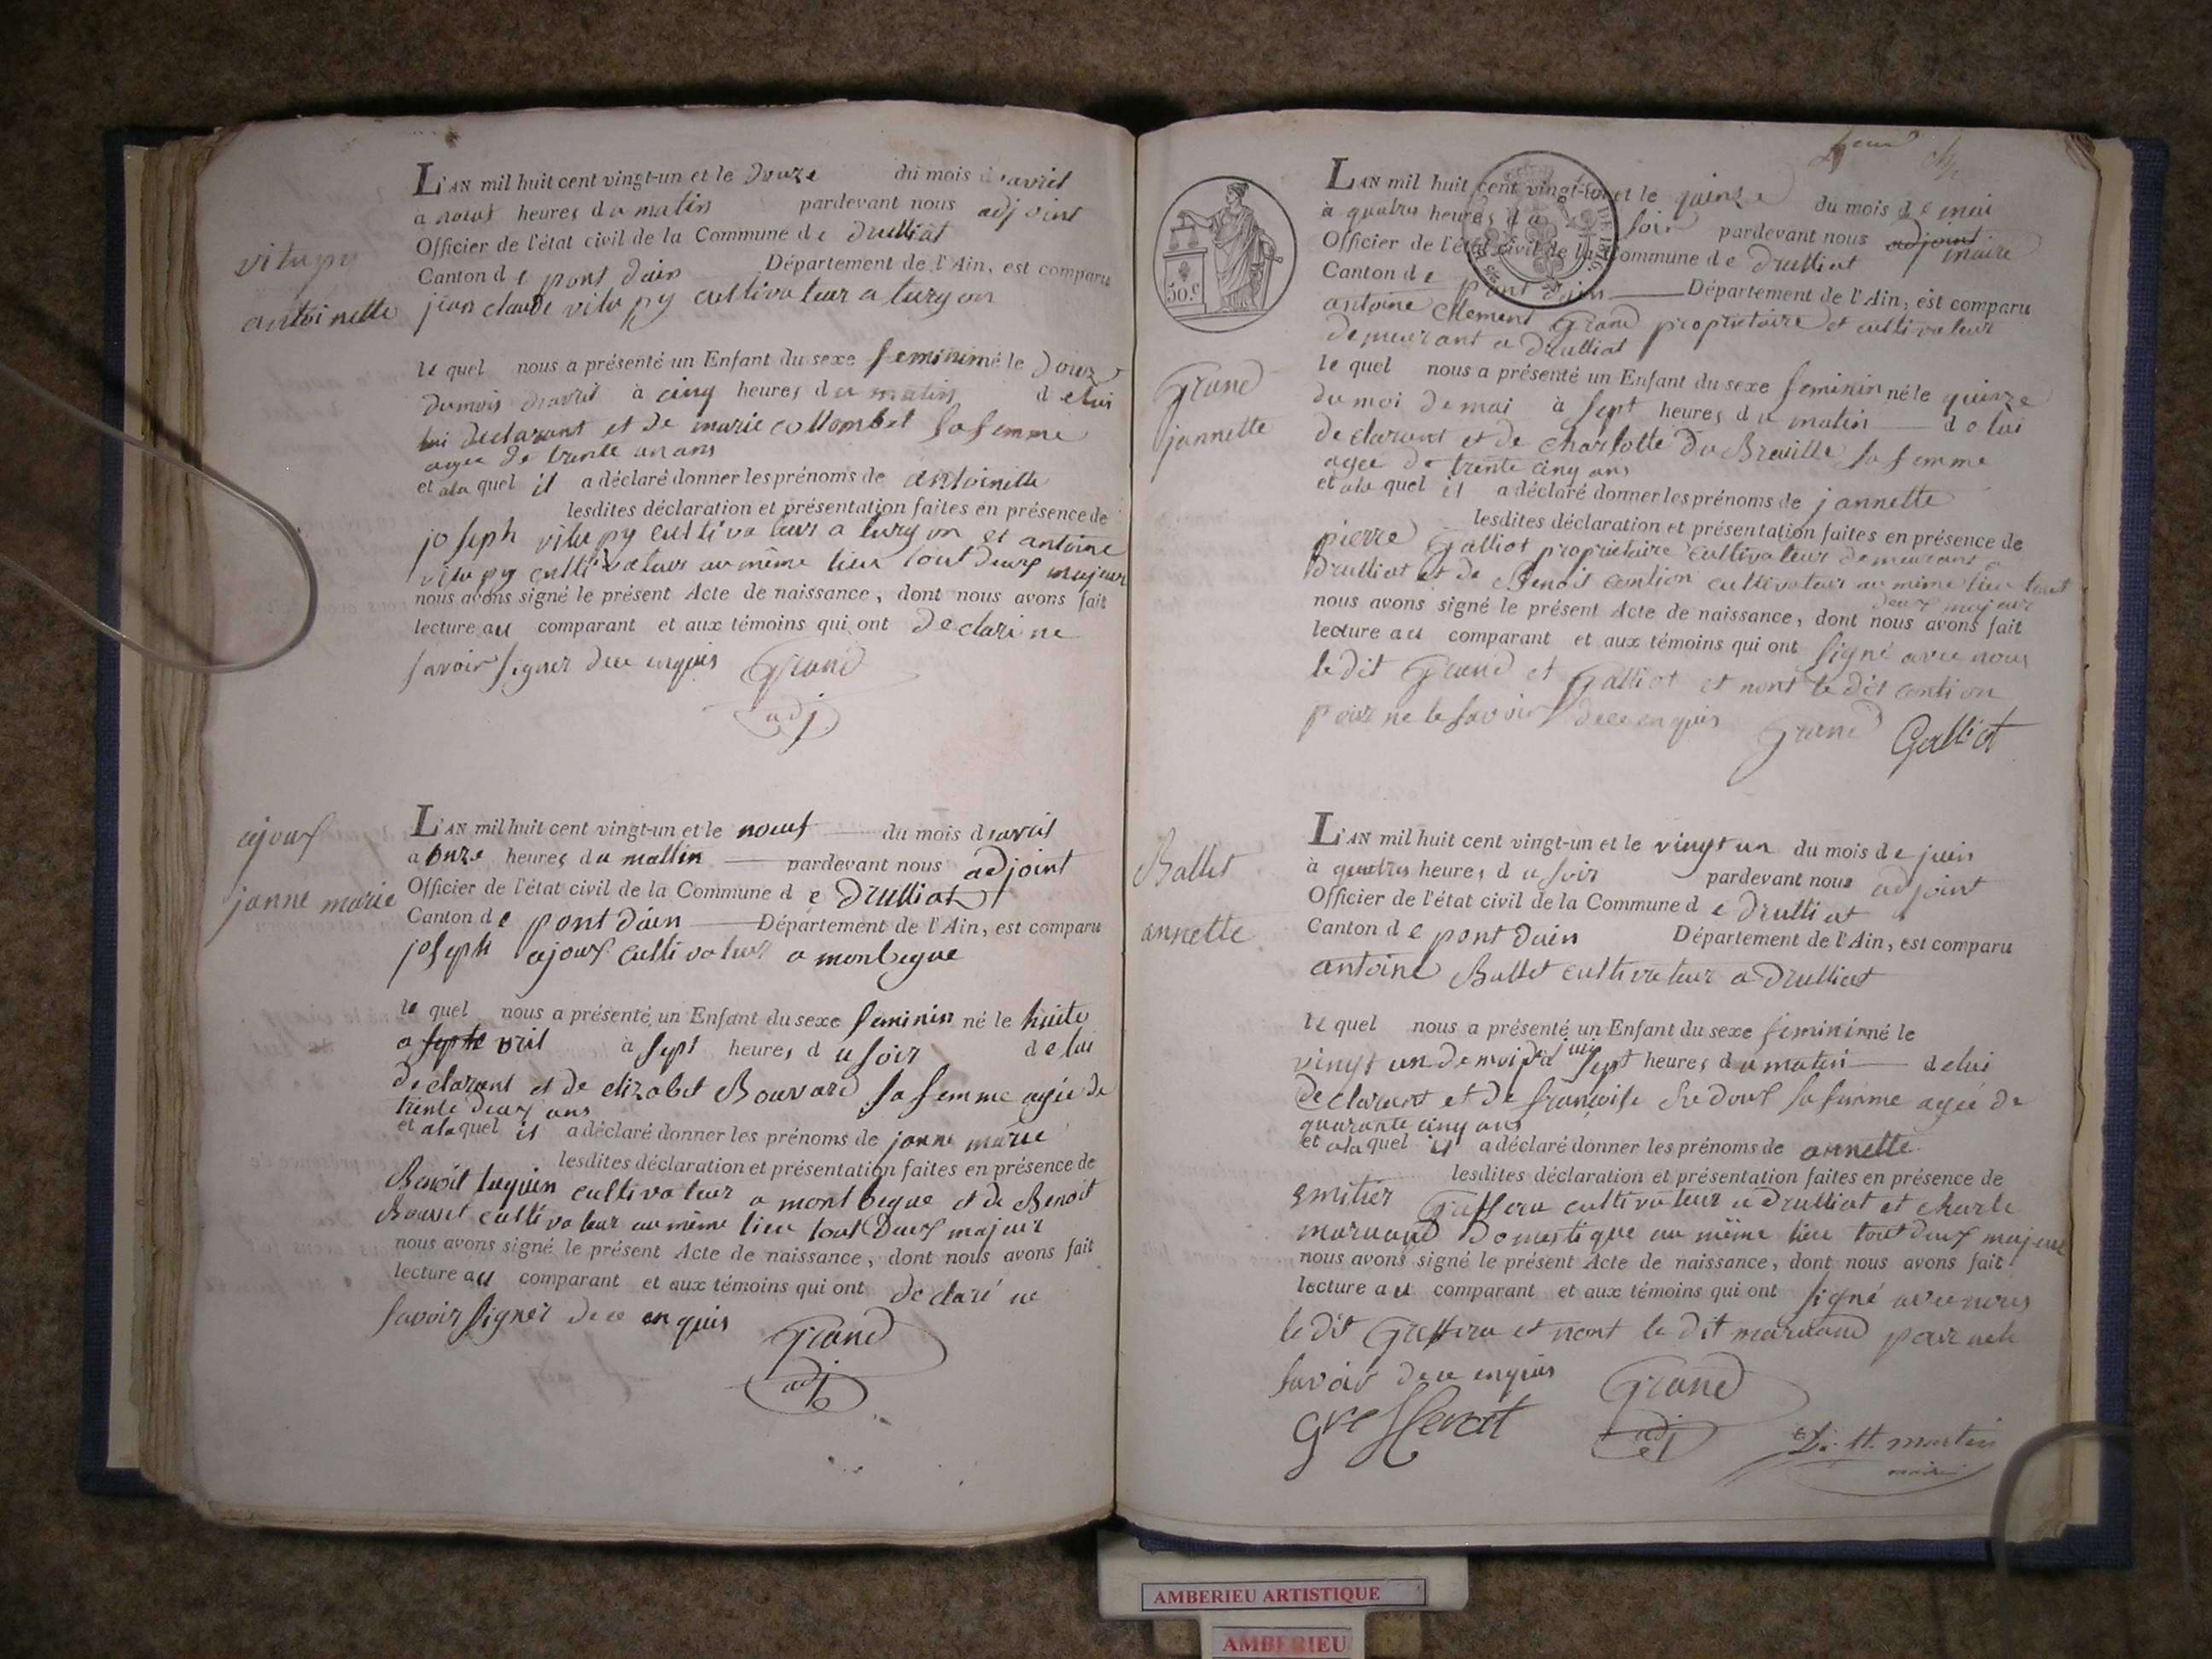 vitupy
antoinette
L'AN mil huit cent vingt-un et le douze du mois d'avril
a noeuf heures du matin pardevant nous adjoint
Officier de l'état civil de la Commune de drulliat
Canton de pont dain Département de l'Ain, est comparu
jean claude vitupy cultivateur a turgon
le quel nous a présenté un Enfant du sexe feminin né le douz
du mois davril à cinq heures du matin de lui
lui declarant et de marie collombet sa femme
agee de trente un ans
et ala quel il a déclaré donner les prénoms de antoinette
lesdites déclaration et présentation faites en présence de
joseph vitupy cultivateur a turgon et antoine
vitupy cultivateur au même lieu tout deux majeur
nous avons signé le présent Acte de naissance, dont nous avons fait
lecture au comparant et aux témoins qui ont declari ne
savoir signer dece enquis Grand
adj
ajoux
janne marie
L'AN mil huit cent vingt-un et le noeuf du mois davril
a onze heures du mattin pardevant nous adjoint
Officier de l'état civil de la Commune de Drulliat
Canton de pont dain Département de l'Ain, est comparu
joseph ajoux cultivateur a montbegue
le quel nous a présenté un Enfant du sexe feminin né le huite
a septe vril à sept heures du soir de lui
declarant et de elizabet Bouvard sa femme agée de
trente deux ans
et ala quel il a déclaré donner les prénoms de janne marie
lesdites déclaration et présentation faites en présence de
Benoit luquin cultivateur a montbegue et de Benoit
Bouvet cultivateur au même lieu tout Deux majeur
nous avons signé le présent Acte de naissance, dont nous avons fait
lecture au comparant et aux témoins qui ont declaré ne
savoir signer dece enquis Grand
adj
50.c
DE 1816
Grand
jannette
L'AN mil huit cent vingt-un et le quinze du mois de mai
à quatre heures du soir pardevant nous adjoint maire
Officier de l'état civil de la Commune de Drulliat
Canton de pont dain Département de l'Ain, est comparu
antoine Clement Grand proprietaire et cultivateur
demeurant a Drulliat
le quel nous a présenté un Enfant du sexe feminin né le quinze
du moi de mai à sept heures du matin de lui
declarant et de charlotte Du Breuille sa femme
agee de trente cinq ans
et ala quel il a déclaré donner les prénoms de jannette
lesdites déclaration et présentation faites en présence de
pierre Galliot proprietaire cultivateur demeurant a
Drulliat et de Benoit contion cultivateur au même lieu tout
deux majeur
nous avons signé le présent Acte de naissance, dont nous avons fait
lecture au comparant et aux témoins qui ont signé avec nous
le dit Grand et Galliot et nont le dit contion
pour ne le savoir dece enquis Grand Galliot
Ballet
annette
L'AN mil huit cent vingt-un et le vingt un du mois de juin
à quatre heures du soir pardevant nous adjoint
Officier de l'état civil de la Commune de Drulliat
Canton de pont dain Département de l'Ain, est comparu
antoine Ballet cultivateur a Drulliat
le quel nous a présenté un Enfant du sexe feminin né le
vingt un de moi de juin sept heures du matin de lui
declarant et de françoise sa femme agée de
quarante cinq ans
et ala quel il a déclaré donner les prénoms de annette
lesdites déclaration et présentation faites en présence de
emilier cultivateur a Drulliat et charle
maruand Domestique au même lieu tout deux majeur
nous avons signé le présent Acte de naissance, dont nous avons fait
lecture au comparant et aux témoins qui ont signé avec nous
le dit et nont le dit maruand pour ne le
savoir dece enquis Grand
adj
martin
AMBERIEU ARTISTIQUE
AMBERIEU